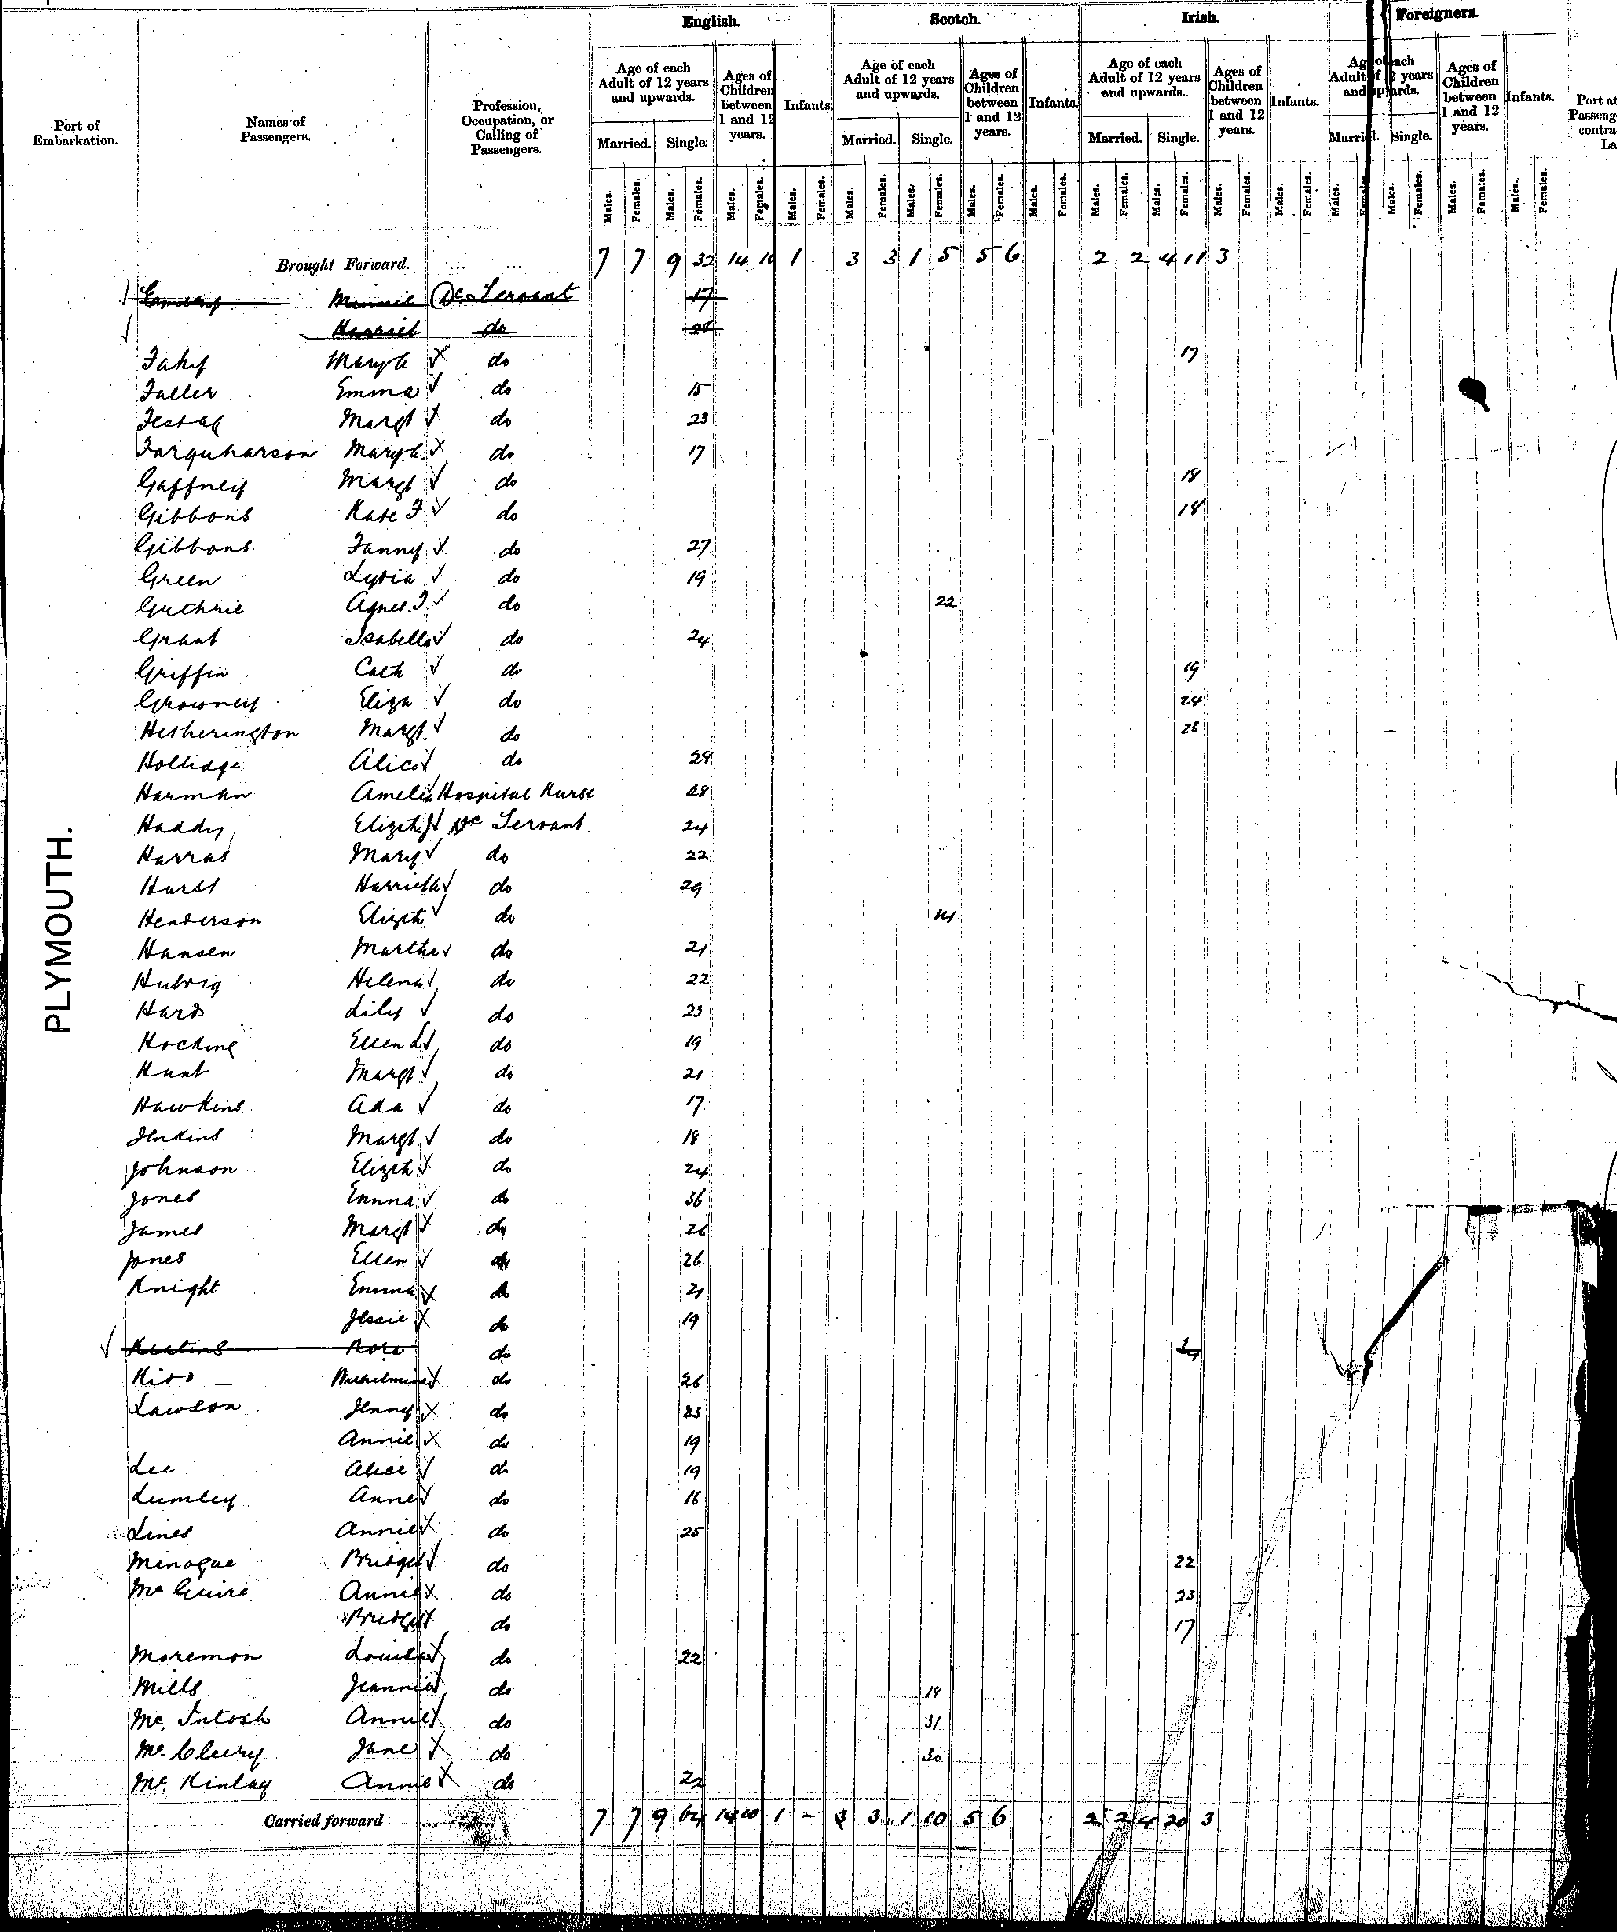 English. Scotch. Irish. Foreigners.
Port of Embarkation. Names of Passengers. Profession, Occupation, or Calling of Passengers. Age of each Adult of 12 years and upwards. Ages of Children between 1 and 12 years. Infants. Age of each Adult of 12 years and upwards. Ages of Children between 1 and 12 years. Infants. Age of each Adult of 12 years and upwards. Ages of Children between 1 and 12 years. Infants. Age of each Adult of 12 years and upwards. Ages of Children between 1 and 12 years. Infants.
Married. Single. Married. Single. Married. Single. Married. Single.
Males. Females. Males. Females. Males. Females. Males. Females. Males. Females. Males. Females. Males. Females. Males. Females. Males. Females. Males. Females. Males. Females. Males. Females. Males. Females. Males. Females. Males. Females. Males. Females.
Brought Forward. 7 7 9 32 14 10 1 3 3 1 5 5 6 2 2 4 11 3
Minnie Dc Servant 17
Harriet do
Fahy Mary do 17
Fuller Emma do 15
Margt do 23
Farquharson Mary do 17
Gaffney Margt do 18
Gibbons Kate F do 18
Gibbons Fanny do 27
Green Lydia do 19
Guthrie Agnes do 22
Grant Isabella do 24
Griffin Cath do 19
Growney Eliza do 24
Hetherington Margt do 26
Holledge Alice do 29
Harman Amelia Hospital Nurse 28
Haddy Elizth Dc Servant 24
Harras Mary do 22
Hurst Harriet do 29
Henderson Elizth do
Hansen Martha do 21
Hubrig Helena do 22
Hard Lily do 23
Hocking Ellen do 19
Hunt Margt do 21
Hawkins Ada do 17
Jenkins Margt do 18
Johnson Elizth do 24
Jones Emma do 36
James Margt do 26
Jones Ellen do 26
Knight Emma do 21
Jessie do 19
Rose do
Wilhelmina do 26
Lawson Jenny do 23
Annie do 19
Lee Alice do 19
Lumley Anne do 16
Lines Annie do 25
Minogue Bridget do 22
Mc Guire Annie do 23
Bridget do 17
Moremon Louisa do 22
Mills Jeannie do 18
Mc. Intosh Annie do 31
Mc. Cleery Jane do 30
Mc. Kinlay Annie do 22
Carried forward 7 7 9 64 14 10 1 - 3 3 1 10 5 6 2 2 4 20 3
PLYMOUTH.